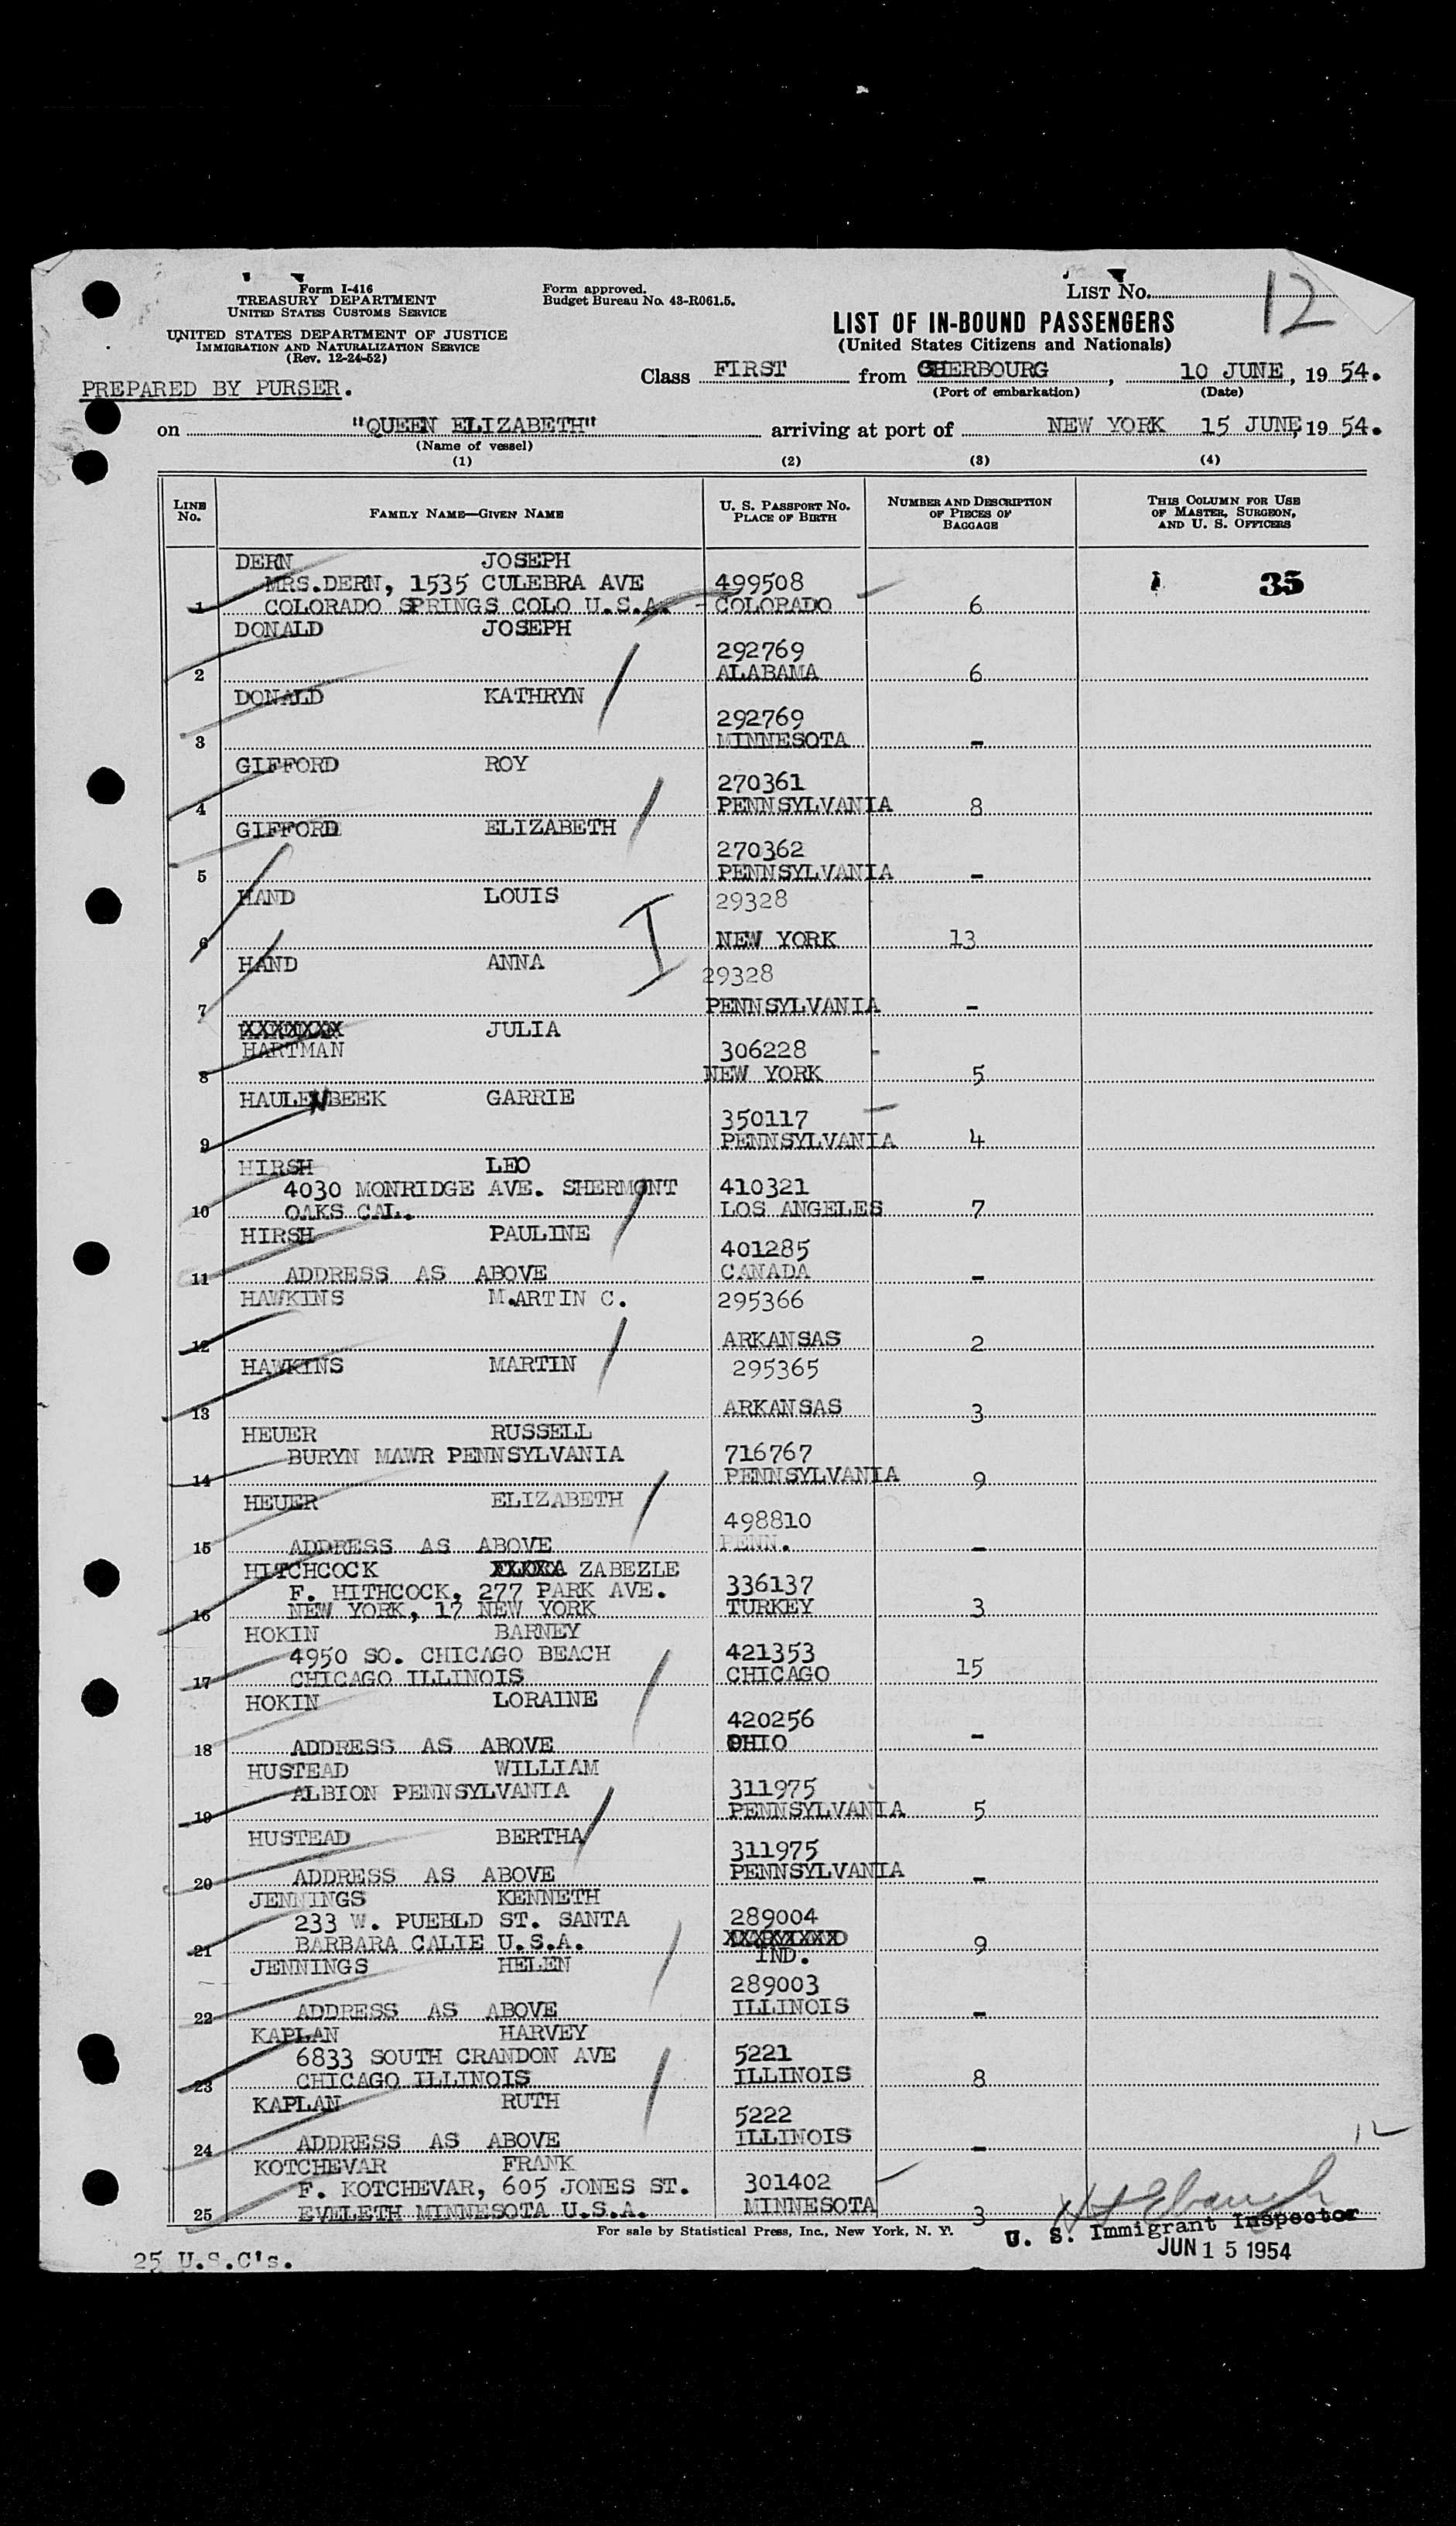 Form I-416
TREASURY DEPARTMENT
UNITED STATES CUSTOMS SERVICE
UNITED STATES DEPARTMENT OF JUSTICE
IMMIGRATION AND NATURALIZATION SERVICE
(Rev. 12-24-52)
Form approved.
Budget Bureau No. 43-R061.5.
LIST No. 12
LIST OF IN-BOUND PASSENGERS
(United States Citizens and Nationals)
PREPARED BY PURSER.
Class FIRST from CHERBOURG, 10 JUNE, 19 54.
(Port of embarkation) (Date)
on "QUEEN ELIZABETH" arriving at port of NEW YORK 15 JUNE, 19 54.
(Name of vessel)
(1) (2) (3) (4)
LINE No. FAMILY NAME—GIVEN NAME U. S. PASSPORT NO. PLACE OF BIRTH NUMBER AND DESCRIPTION OF PIECES OF BAGGAGE THIS COLUMN FOR USE OF MASTER, SURGEON, AND U. S. OFFICERS
DERN JOSEPH
MRS.DERN, 1535 CULEBRA AVE 499508 35
1 COLORADO SPRINGS COLO U.S.A. COLORADO 6
DONALD JOSEPH
292769
2 ALABAMA 6
DONALD KATHRYN
292769
3 MINNESOTA -
GIFFORD ROY
270361
4 PENNSYLVANIA 8
GIFFORD ELIZABETH
270362
5 PENNSYLVANIA -
HAND LOUIS 29328
6 NEW YORK 13
HAND ANNA 29328
7 PENNSYLVANIA -
XXXXXXX JULIA
HARTMAN 306228
8 NEW YORK 5
HAULENBEEK GARRIE
350117
9 PENNSYLVANIA 4
HIRSH LEO
4030 MONRIDGE AVE. SHERMONT 410321
10 OAKS CAL. LOS ANGELES 7
HIRSH PAULINE
401285
11 ADDRESS AS ABOVE CANADA -
HAWKINS M.ARTIN C. 295366
12 ARKANSAS 2
HAWKINS MARTIN 295365
13 ARKANSAS 3
HEUER RUSSELL
BURYN MAWR PENNSYLVANIA 716767
14 PENNSYLVANIA 9
HEUER ELIZABETH
498810
15 ADDRESS AS ABOVE PENN. -
HITCHCOCK ZABEZLE
F. HITHCOCK, 277 PARK AVE. 336137
16 NEW YORK, 17 NEW YORK TURKEY 3
HOKIN BARNEY
4950 SO. CHICAGO BEACH 421353
17 CHICAGO ILLINOIS CHICAGO 15
HOKIN LORAINE
420256
18 ADDRESS AS ABOVE OHIO -
HUSTEAD WILLIAM
ALBION PENNSYLVANIA 311975
19 PENNSYLVANIA 5
HUSTEAD BERTHA
311975
20 ADDRESS AS ABOVE PENNSYLVANIA -
JENNINGS KENNETH
233 W. PUEBLD ST. SANTA 289004
21 BARBARA CALIE U.S.A. IND. 9
JENNINGS HELEN
289003
22 ADDRESS AS ABOVE ILLINOIS -
KAPLAN HARVEY
6833 SOUTH CRANDON AVE 5221
23 CHICAGO ILLINOIS ILLINOIS 8
KAPLAN RUTH
5222
24 ADDRESS AS ABOVE ILLINOIS - 12
KOTCHEVAR FRANK
F. KOTCHEVAR, 605 JONES ST. 301402
25 EVELETH MINNESOTA U.S.A. MINNESOTA 3
For sale by Statistical Press, Inc., New York, N. Y.
U. S. Immigrant Inspector
JUN 15 1954
25 U.S.C's.